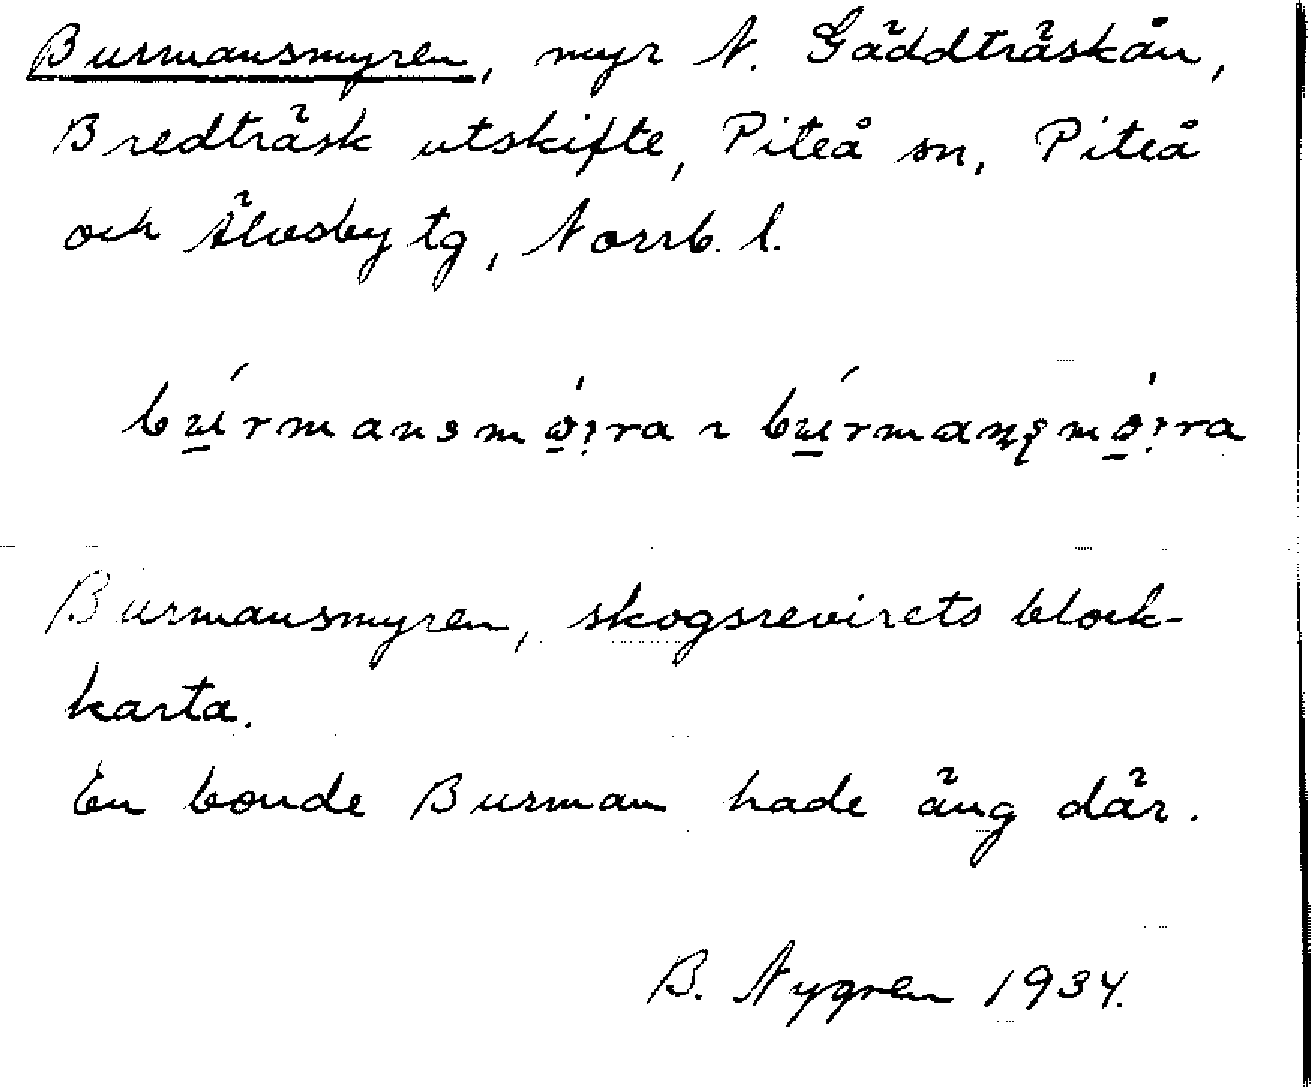 Burmansmyren, myr N. Gäddträskån,
Bredträsk utskifte, Piteå sn, Piteå
och Älvsby tg, Norrb. l.
Burmansmyren, skogsrevirets block-
karta.
En bonde Burman hade äng där.
B. Nygren 1934.